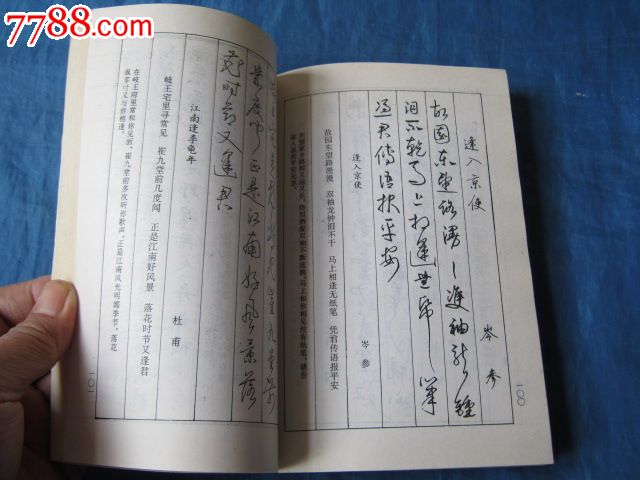 7788.com
逢入京使
岑参
故园东望路漫漫双袖龙钟
泪不干马上相逢无纸笔
凭君传语报平安
逢入京使
岑参
故园东望路漫漫 双袖龙钟泪不干 马上相逢无纸笔 凭君传语报平安
一〇〇
岐王宅里寻常见崔九堂前
几度闻正是江南好风景落
花时节又逢君
江南逢李龟年
杜甫
岐王宅里寻常见 崔九堂前几度闻 正是江南好风景 落花时节又逢君
在岐王府里常和你见面,崔九堂前多次听你歌声。正是江南风光明媚季节,落花
很多时又与你相逢。
一〇一